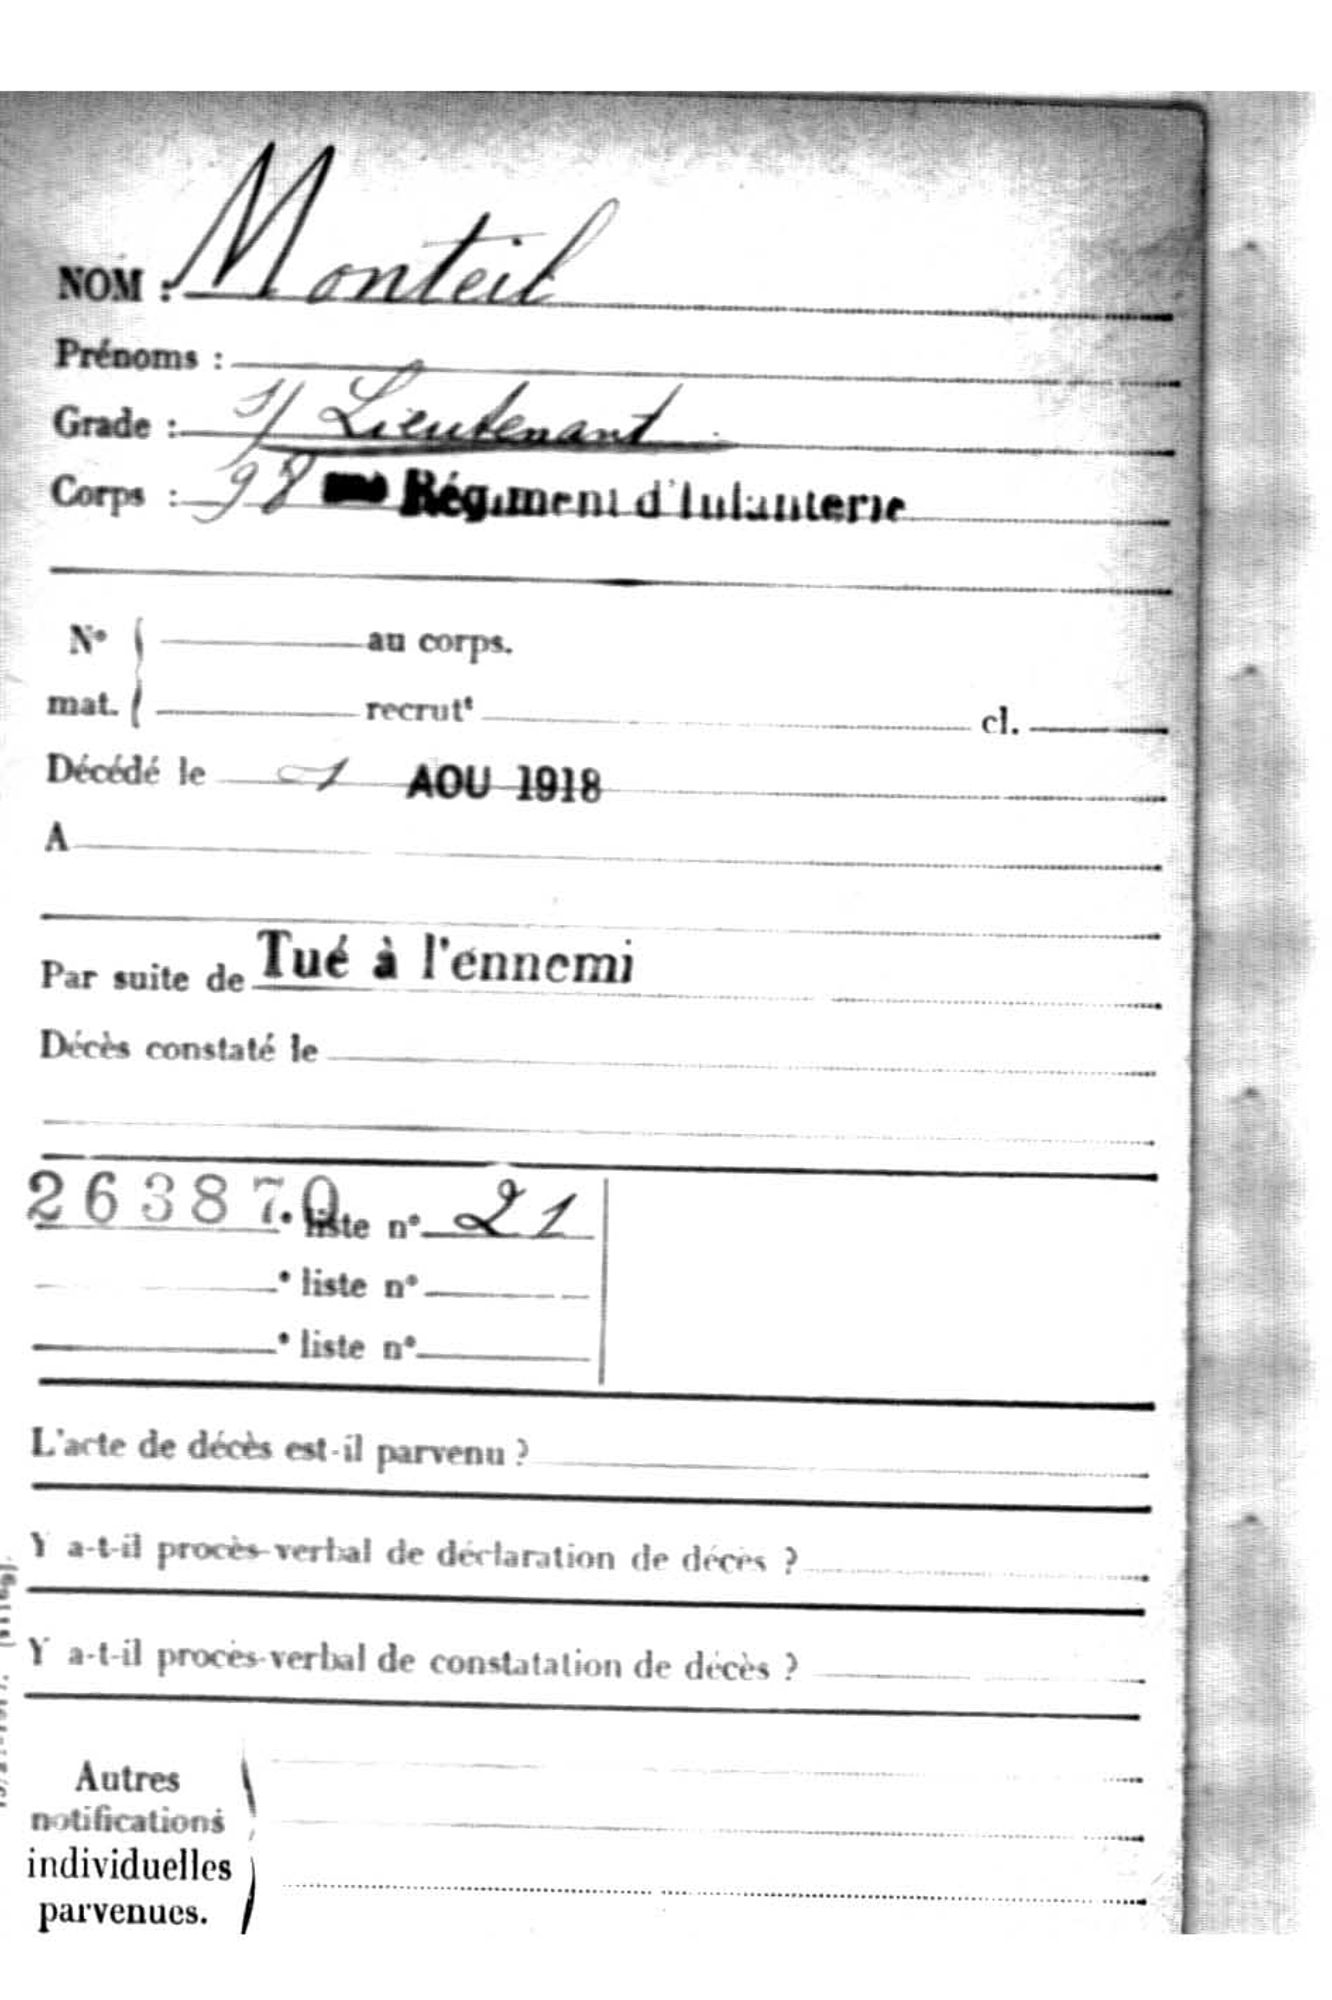 NOM : Monteil
Prénoms :
Grade : S/ Lieutenant
Corps : 98 Régiment d'Infanterie
N° au corps.
mat. recrutt cl.
Décédé le 1 AOU 1918
A
Par suite de Tué à l'ennemi
Décès constaté le
263870 • liste n° 21
• liste n°
• liste n°
L'acte de décès est-il parvenu ?
Y a-t-il procès-verbal de déclaration de décès ?
Y a-t-il procès-verbal de constatation de décès ?
Autres
notifications
individuelles
parvenues.